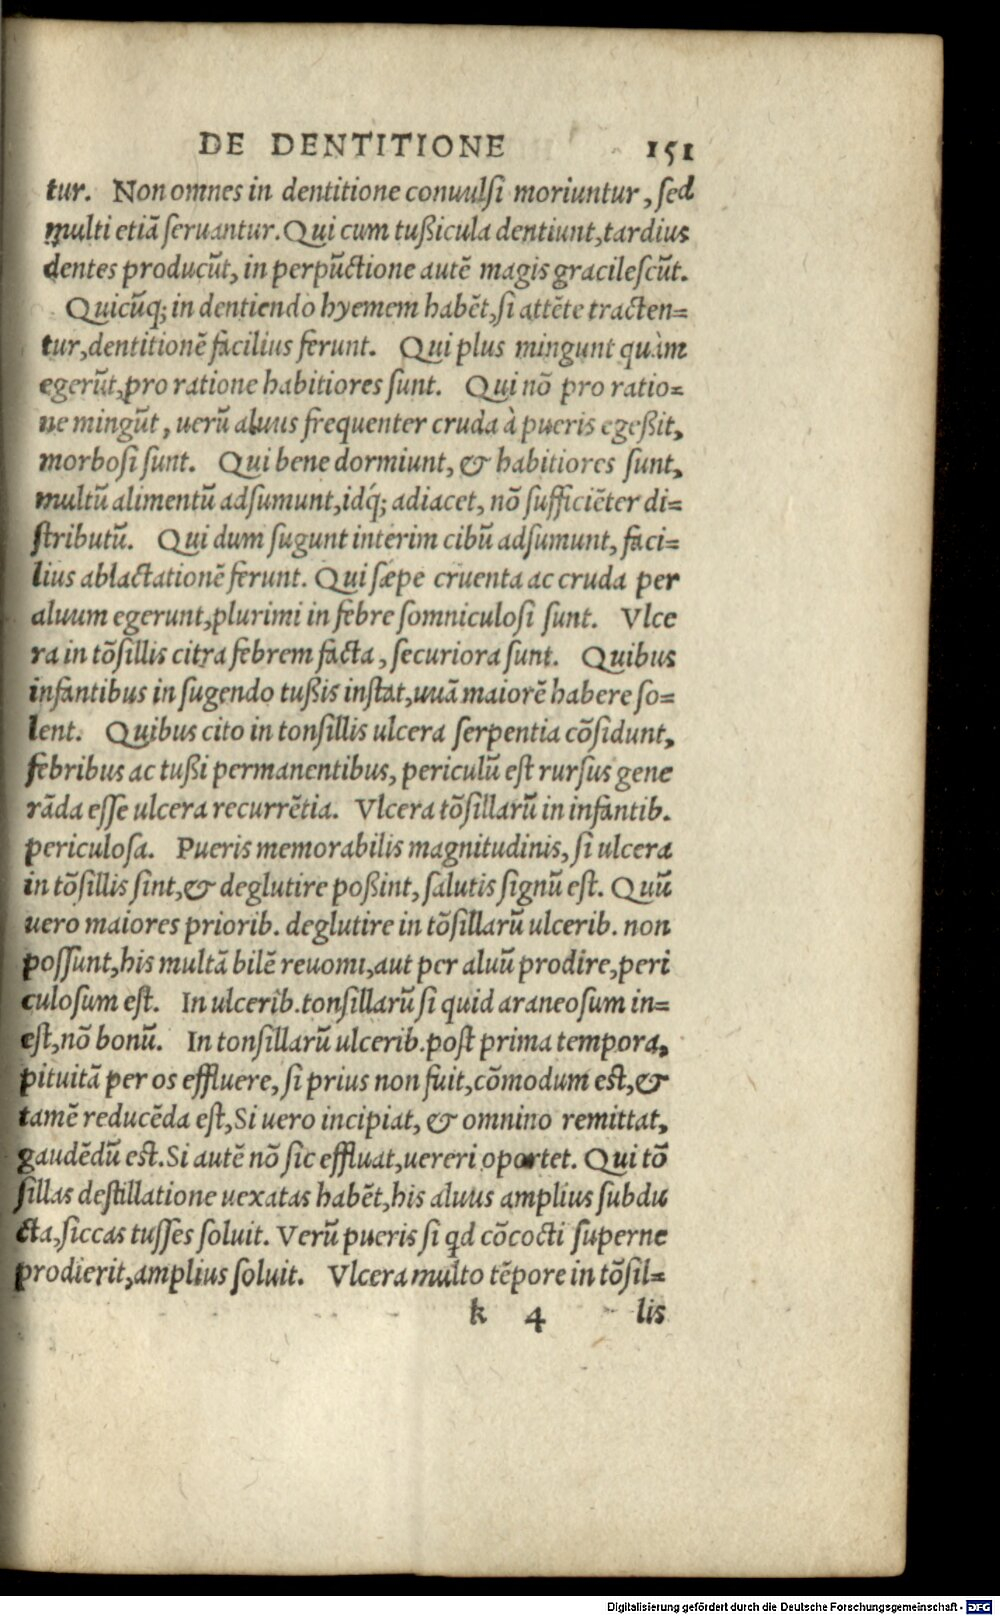 DE DENTITIONE 151
tur. Non omnes in dentitione conuulsi moriuntur, sed
multi etiã seruantur. Qui cum tußicula dentiunt, tardius
dentes producũt, in perpũctione autẽ magis gracilescũt.
Quicũq; in dentiendo hyemem habẽt, si attẽte tracten=
tur, dentitionẽ facilius ferunt. Qui plus mingunt quàm
egerũt, pro ratione habitiores sunt. Qui nõ pro ratio=
ne mingũt, uerũ aluus frequenter cruda à pueris egeßit,
morbosi sunt. Qui bene dormiunt, & habitiores sunt,
multũ alimentũ adsumunt, idq́; adiacet, nõ sufficiẽter di=
stributũ. Qui dum sugunt interim cibũ adsumunt, faci=
lius ablactationẽ ferunt. Qui sæpe cruenta ac cruda per
aluum egerunt, plurimi in febre somniculosi sunt. Vlce
ra in tõsillis citra febrem facta, securiora sunt. Quibus
infantibus in sugendo tußis instat, uuã maiorẽ habere so=
lent. Quibus cito in tonsillis ulcera serpentia cõsidunt,
febribus ac tußi permanentibus, periculũ est rursus gene
rãda esse ulcera recurrẽtia. Vlcera tõsillarũ in infantib.
periculosa. Pueris memorabilis magnitudinis, si ulcera
in tõsillis sint, & deglutire poßint, salutis signũ est. Quũ
uero maiores priorib. deglutire in tõsillarũ ulcerib. non
possunt, his multã bilẽ reuomi, aut per aluũ prodire, peri
culosum est. In ulcerib. tonsillarũ si quid araneosum in=
est, nõ bonũ. In tonsillarũ ulcerib. post prima tempora,
pituitã per os effluere, si prius non fuit, cõmodum est, &
tamẽ reducẽda est, Si uero incipiat, & omnino remittat,
gaudẽdũ est. Si autẽ nõ sic effluat, uereri oportet. Qui tõ
sillas destillatione uexatas habẽt, his aluus amplius subdu
cta, siccas tusses soluit. Verũ pueris si qd cõcocti superne
prodierit, amplius soluit. Vlcera multo tẽpore in tõsil=
k 4 lis
Digitalisierung gefördert durch die Deutsche Forschungsgemeinschaft - DFG